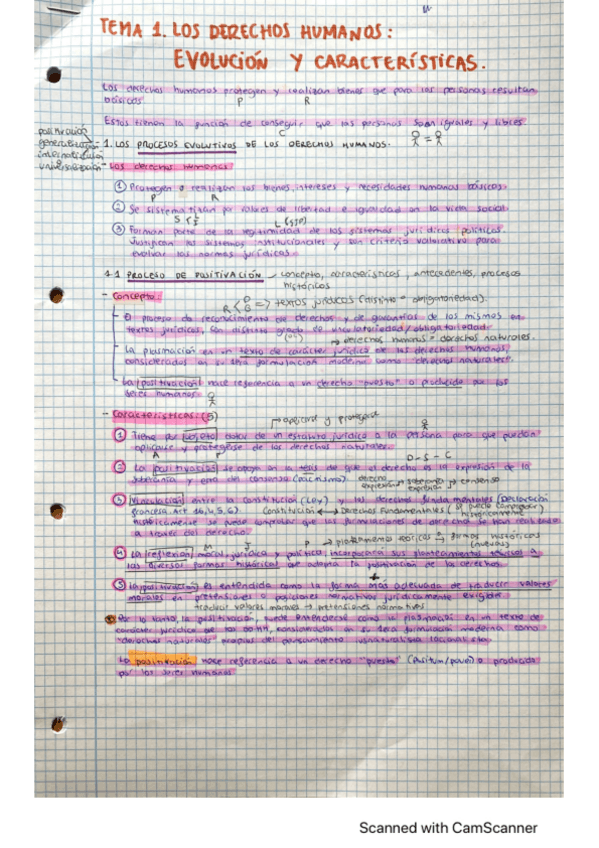 TEMA 1. LOS DERECHOS HUMANOS:
EVOLUCIÓN Y CARACTERÍSTICAS.
Los derechos humanos protegen y realizan bienes que para las personas resultan
básicos
P R
Estos tienen la función de conseguir que las personas sean iguales y libres.
C
positivación
generalización
internacionalización
universalización
1. LOS PROCESOS EVOLUTIVOS DE LOS DERECHOS HUMANOS.
Los derechos humanos
① Protegen o realizan los bienes, intereses y necesidades humanas básicos
P R
② Se sistematizan por valores de libertad e igualdad en la vida social.
③ Forman parte de la legitimidad de los sistemas jurídicos políticos.
Justifican los sistemas institucionales y son criterio valorativo para
evaluar las normas jurídicas.
1.1 PROCESO DE POSITIVACIÓN concepto, características, antecedentes, procesos
históricos
- Concepto:
R < D G => textos jurídicos (distinto obligatoriedad).
El proceso de reconocimiento de derechos y de garantías de los mismos en
textos jurídicos, son distinto grado de vinculatoriedad/obligatoriedad
→ derechos humanos = derechos naturales.
La plasmación en un texto de carácter jurídico de los derechos humanos,
considerados en su 1era formulación moderna como "derechos naturales".
La positivación hace referencia a un derecho "puesto" o producido por los
seres humanos
- Características: (5)
→ aplicarse y protegerse
① Tiene por objeto dotar de un estatuto jurídico a la persona para que puedan
aplicarse y protegerse de los derechos naturales.
A P
D - S - C
② La positivación se apoya en la tesis de que el derecho es la expresión de la
soberanía y end del consenso (pactismo)
derecho expresión → soberanía → consenso
expresión
③ Vinculación entre la constitución (Ley) y los derechos fundamentales (Declaración
francesa Art 16, 4, 5, 6). Constitución ↔ Derechos Fundamentales (se puede comprobar
históricamente)
históricamente se puede comprobar que las formulaciones de derechos se han realizado
a través del derecho.
P → planteamientos teóricos → formas históricas
(nuevas)
④ La reflexión moral, jurídica y política, incorporará sus planteamientos teóricos a
las diversas formas históricas que adopta la positivación de los derechos.
⑤ La positivación es entendida como la forma más adecuada de traducir valores
morales en pretensiones o posiciones normativas jurídicamente exigible
traducir valores morales → pretensiones normativos
Por lo tanto, la positivación, puede entenderse como la plasmación en un texto de
carácter jurídico de los DDHH, considerados en su 1era formulación moderna como
"derechos naturales" propios del pensamiento iusnaturalista racionalista
La positivación hace referencia a un derecho "puesto" (Positum/poner) o producido
por los seres humanos
Scanned with CamScanner